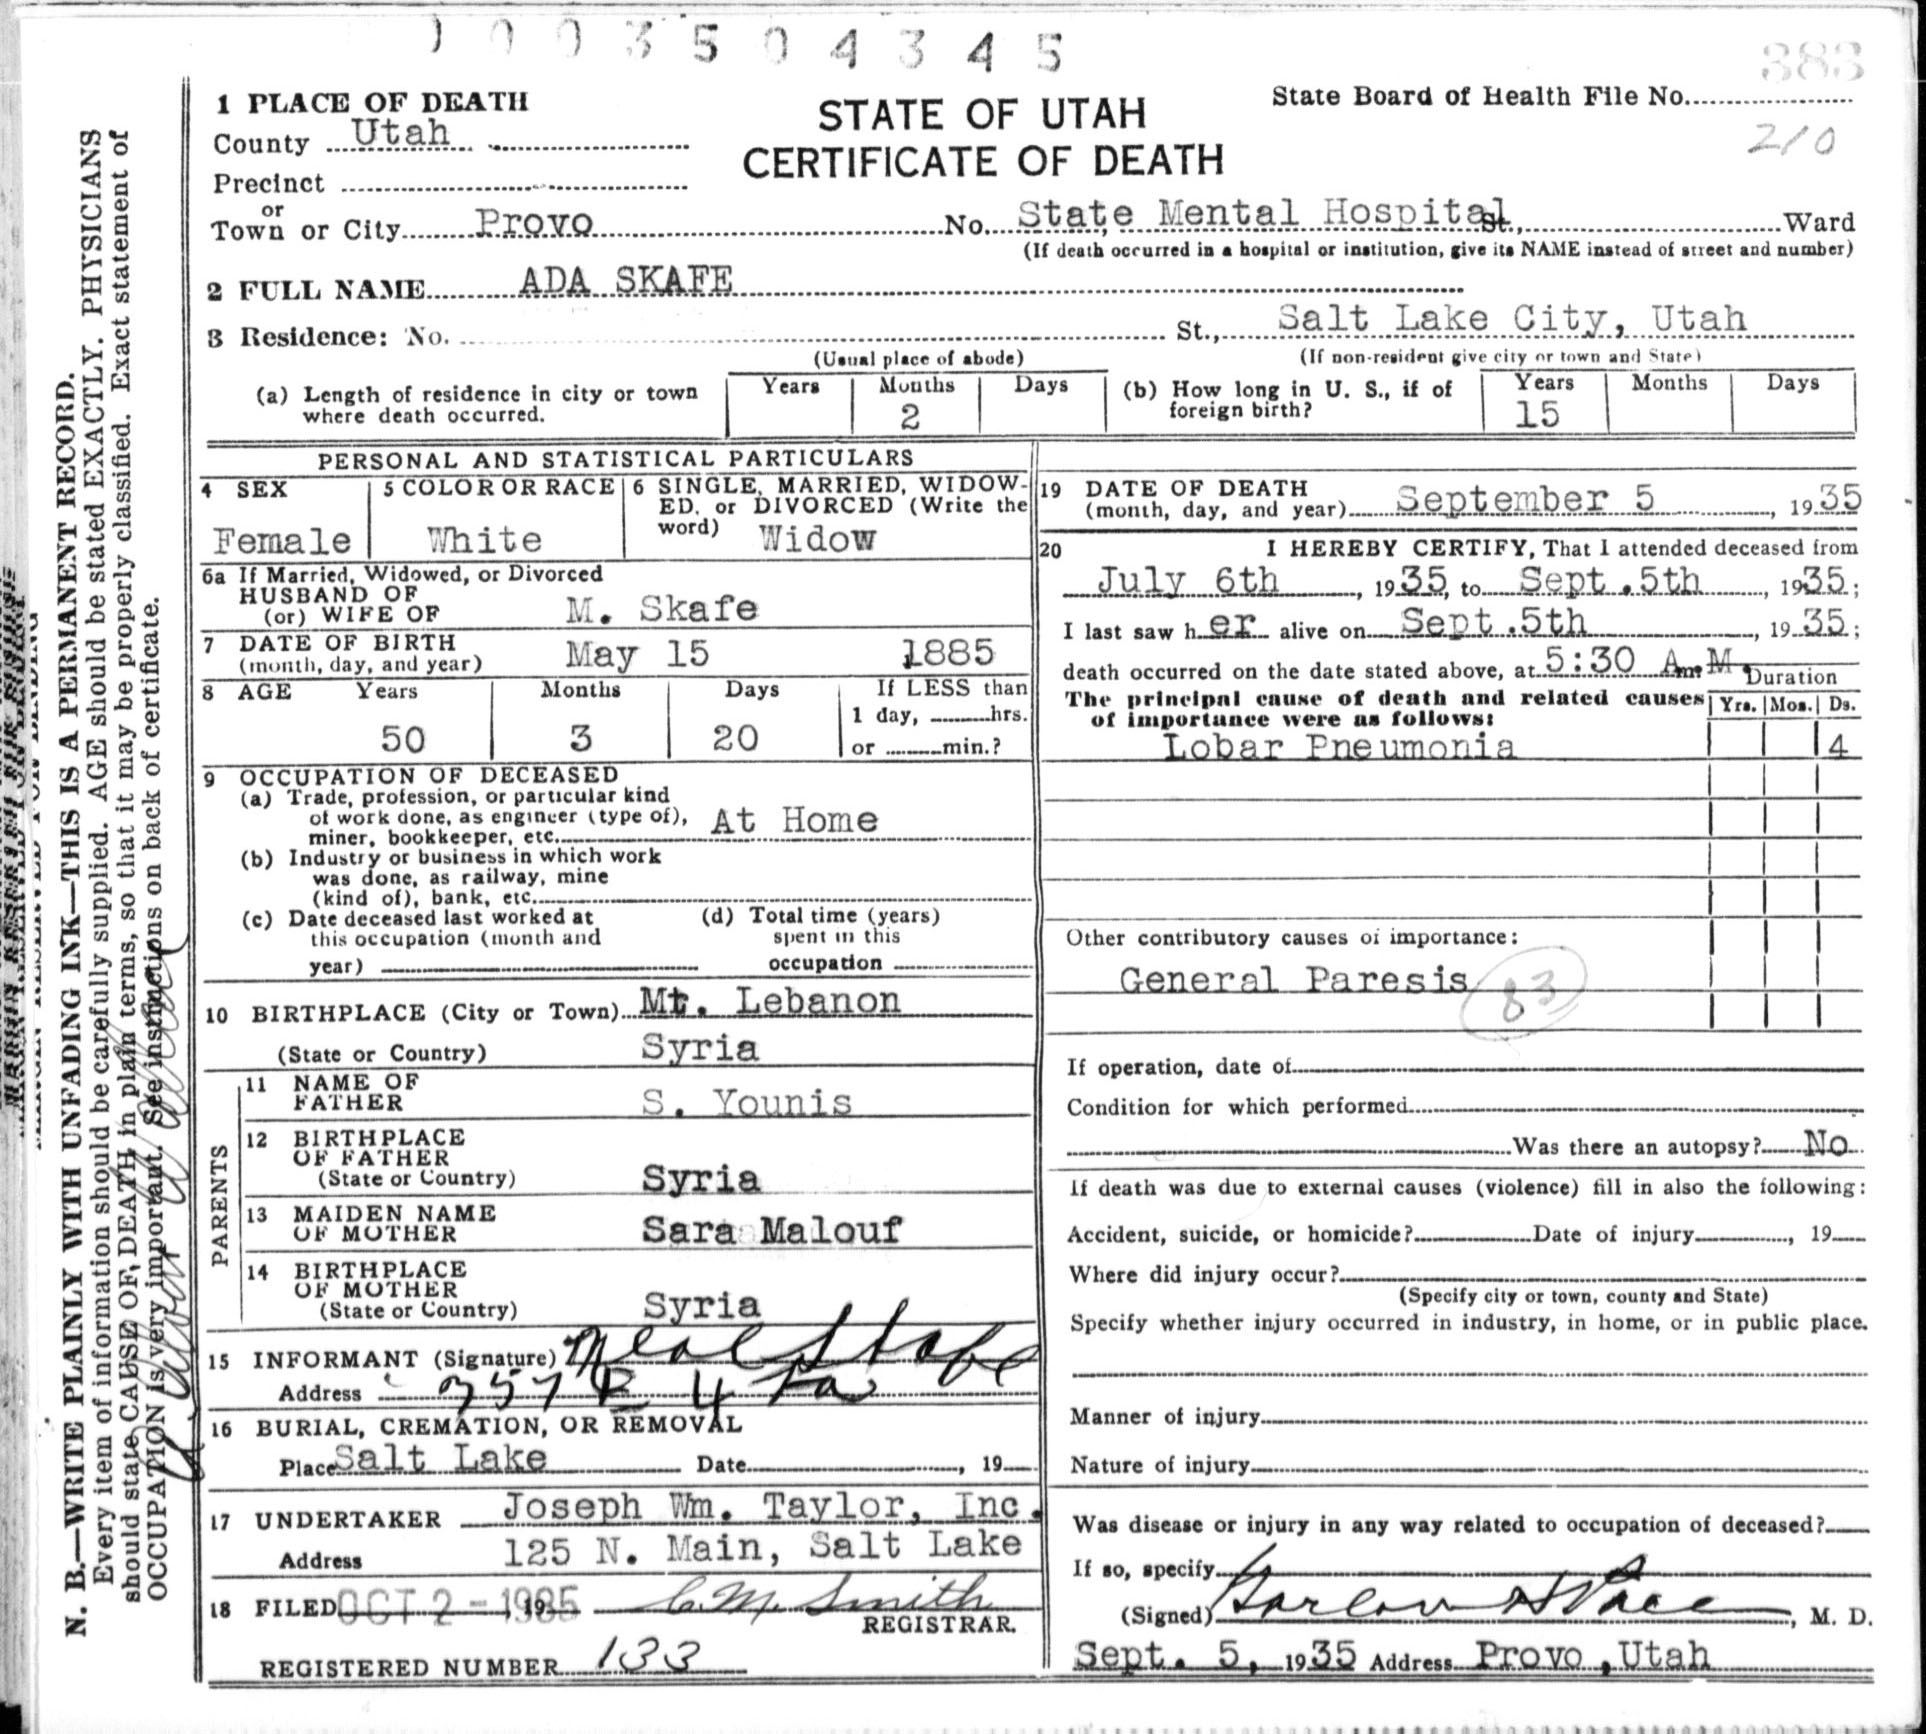 1003504345
383
1 PLACE OF DEATH
STATE OF UTAH
CERTIFICATE OF DEATH
State Board of Health File No.
210
County Utah
Precinct
or
Town or City Provo No. State Mental Hospital St., Ward
(If death occurred in a hospital or institution, give its NAME instead of street and number)
2 FULL NAME ADA SKAFE
3 Residence: No. St., Salt Lake City, Utah
(Usual place of abode) (If non-resident give city or town and State)
(a) Length of residence in city or town where death occurred. Years Months 2 Days
(b) How long in U. S., if of foreign birth? Years 15 Months Days
PERSONAL AND STATISTICAL PARTICULARS
4 SEX
Female
5 COLOR OR RACE
White
6 SINGLE, MARRIED, WIDOW-
ED, or DIVORCED (Write the
word) Widow
6a If Married, Widowed, or Divorced
HUSBAND OF
(or) WIFE OF M. Skafe
7 DATE OF BIRTH
(month, day, and year) May 15 1885
8 AGE Years Months Days If LESS than
1 day, hrs.
50 3 20 or min.?
9 OCCUPATION OF DECEASED
(a) Trade, profession, or particular kind
of work done, as engineer (type of),
miner, bookkeeper, etc. At Home
(b) Industry or business in which work
was done, as railway, mine
(kind of), bank, etc.
(c) Date deceased last worked at
this occupation (month and
year)
(d) Total time (years)
spent in this
occupation
10 BIRTHPLACE (City or Town) Mt. Lebanon
(State or Country) Syria
PARENTS
11 NAME OF
FATHER S. Younis
12 BIRTHPLACE
OF FATHER
(State or Country) Syria
13 MAIDEN NAME
OF MOTHER Sara Malouf
14 BIRTHPLACE
OF MOTHER
(State or Country) Syria
15 INFORMANT (Signature) Neal Skafe
Address 357 E 4
16 BURIAL, CREMATION, OR REMOVAL
Place Salt Lake Date , 19
17 UNDERTAKER Joseph Wm. Taylor, Inc.
Address 125 N. Main, Salt Lake
18 FILED OCT 2 - 1935 , 19 C. M. Smith
REGISTRAR.
REGISTERED NUMBER 133
19 DATE OF DEATH
(month, day, and year) September 5 , 1935
20 I HEREBY CERTIFY, That I attended deceased from
July 6th , 1935, to Sept.5th , 1935;
I last saw her alive on Sept.5th , 1935;
death occurred on the date stated above, at 5:30 A.m. M.
Duration
The principal cause of death and related causes
of importance were as follows:
Yrs. Mos. Ds.
Lobar Pneumonia 4
Other contributory causes of importance:
General Paresis 83
If operation, date of
Condition for which performed
Was there an autopsy? No
If death was due to external causes (violence) fill in also the following:
Accident, suicide, or homicide? Date of injury , 19
Where did injury occur?
(Specify city or town, county and State)
Specify whether injury occurred in industry, in home, or in public place.
Manner of injury
Nature of injury
Was disease or injury in any way related to occupation of deceased?
If so, specify
(Signed) Garland H Pace , M. D.
Sept. 5, 1935 Address Provo, Utah
MARGIN RESERVED FOR BINDING
N. B.—WRITE PLAINLY WITH UNFADING INK—THIS IS A PERMANENT RECORD.
Every item of information should be carefully supplied. AGE should be stated EXACTLY. PHYSICIANS
should state CAUSE OF DEATH in plain terms, so that it may be properly classified. Exact statement of
OCCUPATION is very important. See instructions on back of certificate.